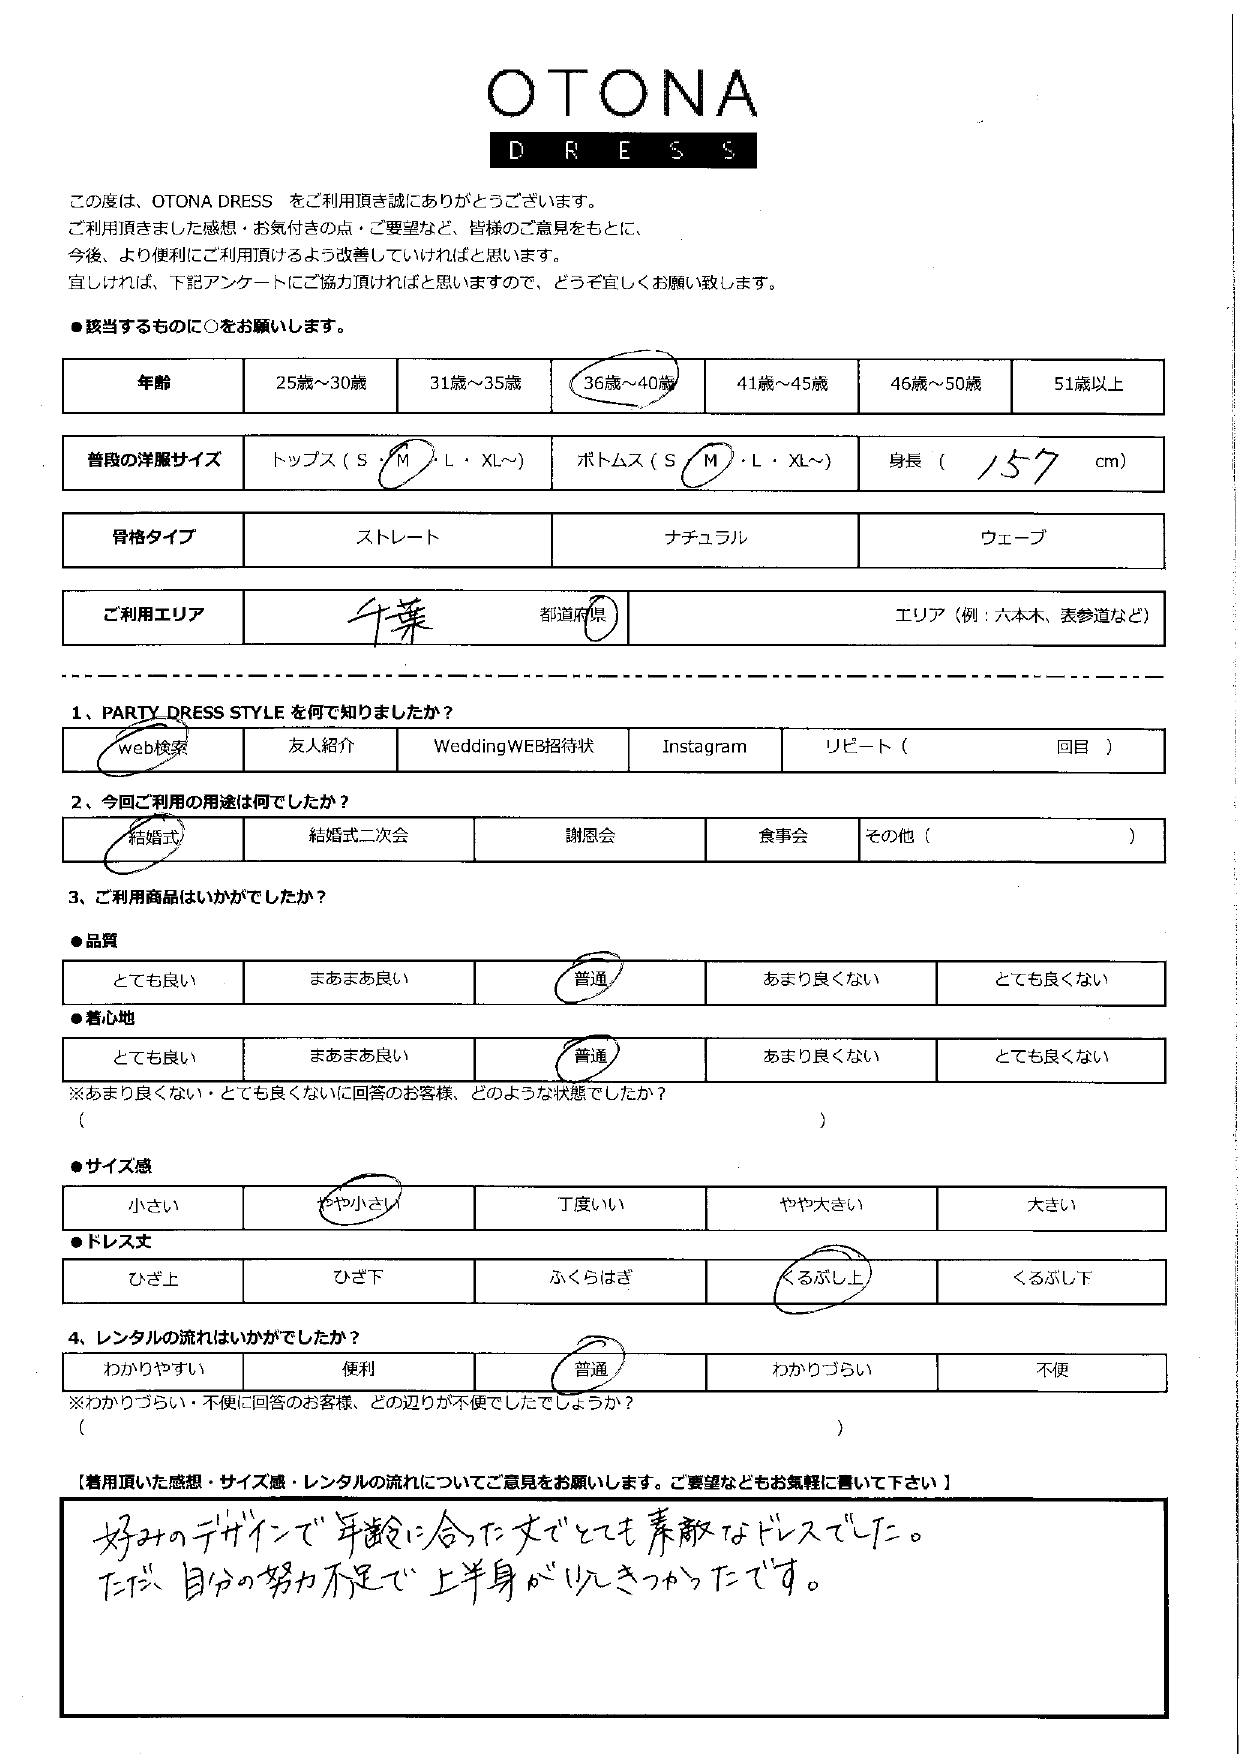 OTONA
DRESS
この度は、OTONA DRESS　をご利用頂き誠にありがとうございます。
ご利用頂きました感想・お気付きの点・ご要望など、皆様のご意見をもとに、
今後、より便利にご利用頂けるよう改善していければと思います。
宜しければ、下記アンケートにご協力頂ければと思いますので、どうぞ宜しくお願い致します。
●該当するものに○をお願いします。
年齢 25歳～30歳 31歳～35歳 36歳～40歳 41歳～45歳 46歳～50歳 51歳以上
普段の洋服サイズ トップス ( S ・ M ・ L ・ XL～) ボトムス ( S ・ M ・ L ・ XL～) 身長 ( 157 cm)
骨格タイプ ストレート ナチュラル ウェーブ
ご利用エリア 千葉 都道府県 エリア（例：六本木、表参道など）
1、PARTY DRESS STYLE を何で知りましたか？
web検索 友人紹介 WeddingWEB招待状 Instagram リピート（ 回目 ）
2、今回ご利用の用途は何でしたか？
結婚式 結婚式二次会 謝恩会 食事会 その他（ ）
3、ご利用商品はいかがでしたか？
●品質
とても良い まあまあ良い 普通 あまり良くない とても良くない
●着心地
とても良い まあまあ良い 普通 あまり良くない とても良くない
※あまり良くない・とても良くないに回答のお客様、どのような状態でしたか？
（ ）
●サイズ感
小さい やや小さい 丁度いい やや大きい 大きい
●ドレス丈
ひざ上 ひざ下 ふくらはぎ くるぶし上 くるぶし下
4、レンタルの流れはいかがでしたか？
わかりやすい 便利 普通 わかりづらい 不便
※わかりづらい・不便に回答のお客様、どの辺りが不便でしたでしょうか？
（ ）
【着用頂いた感想・サイズ感・レンタルの流れについてご意見をお願いします。ご要望などもお気軽に書いて下さい 】
好みのデザインで年齢に合った丈でとても素敵なドレスでした。
ただ、自分の努力不足で上半身が少しきつかったです。